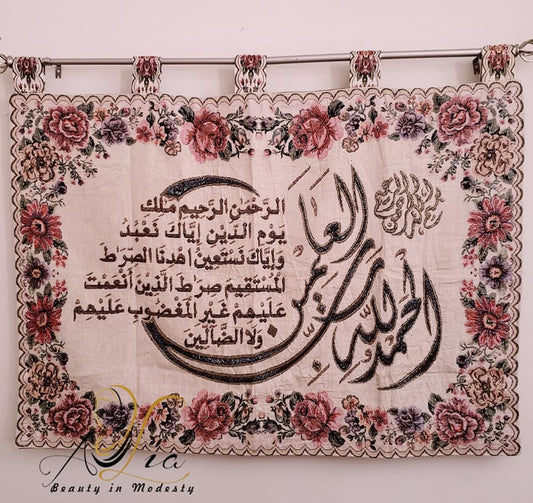 بسم الله الرحمن الرحيم
الحمد لله رب العالمين
الرحمن الرحيم ملك
يوم الدين إياك نعبد
وإياك نستعين اهدنا الصراط
المستقيم صراط الذين أنعمت
عليهم غير المغضوب عليهم
ولا الضالين
Beauty in Modesty